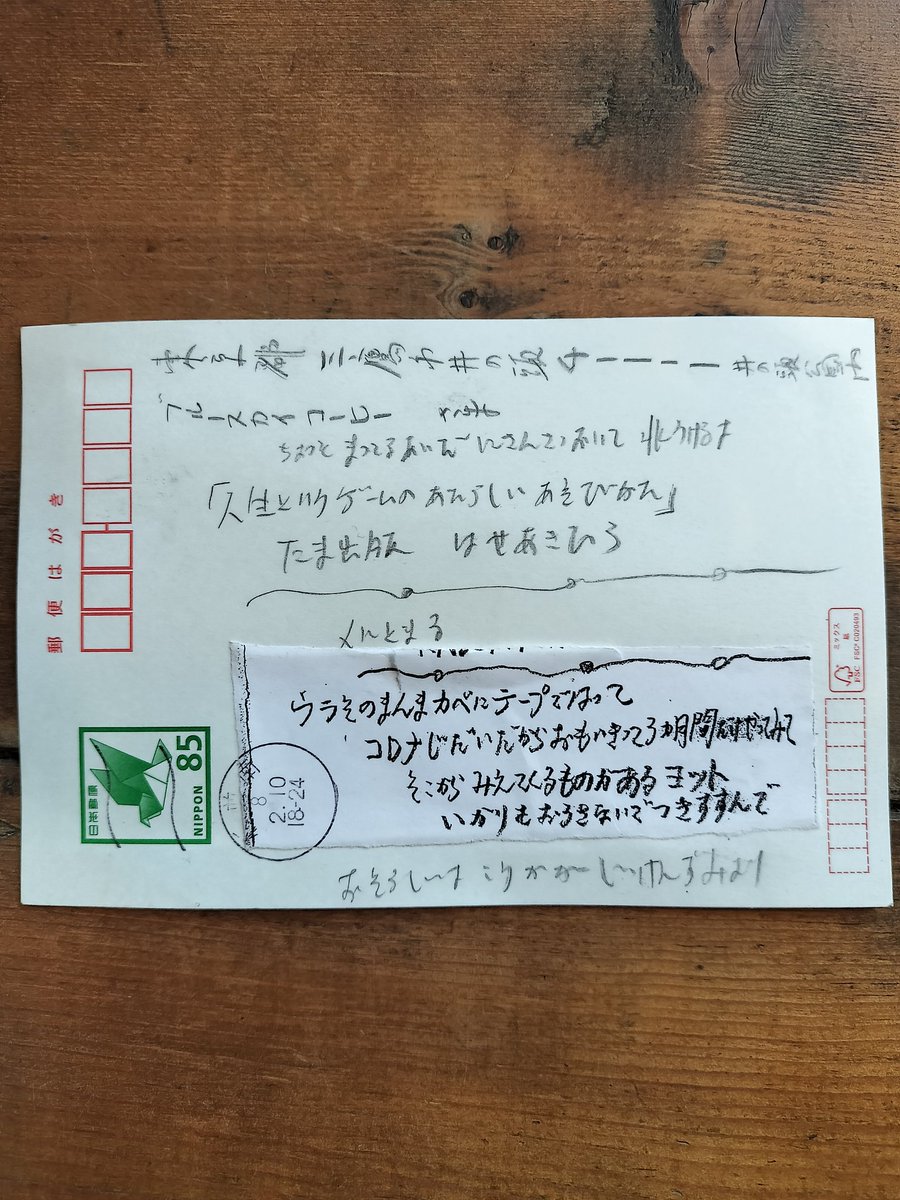 東京都 三鷹市井の頭4ー1ー1 井の頭公園内
ブルースカイコーヒー
ちょっと まってるあいだ にさんさつおいて
「人生というゲームのあたらしいあそびかた」
たま出版 はせあきひろ
メにとまる
ウラそのまんまカベにテープではって
コロナじだいだからおもいきって3カ月間だけやってみて
そこからみえてくるものがあるヨット
いかりもおろさないでつきすすんで
おそろしい
郵便はがき
日本郵便
85
NIPPON
8
2.10
18-24
ミックス
紙
FSC FSC® C020493